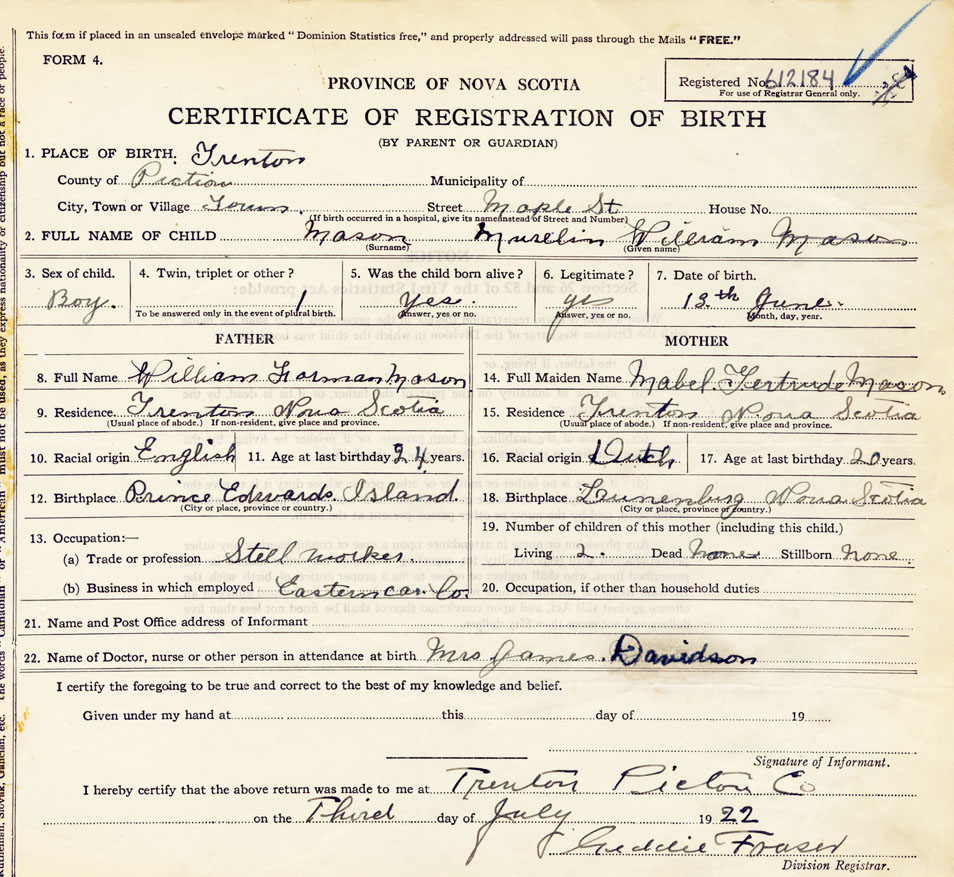 This form if placed in an unsealed envelope marked "Dominion Statistics free," and properly addressed will pass through the Mails "FREE."
FORM 4.
Registered No. 612184
For use of Registrar General only.
PROVINCE OF NOVA SCOTIA
CERTIFICATE OF REGISTRATION OF BIRTH
(BY PARENT OR GUARDIAN)
1. PLACE OF BIRTH: Trenton
County of Piction Municipality of
City, Town or Village Town. Street Maple St. House No.
(If birth occurred in a hospital, give its name instead of Street and Number)
2. FULL NAME OF CHILD Mason William Mason
(Surname) (Given name)
3. Sex of child. 4. Twin, triplet or other? 5. Was the child born alive? 6. Legitimate? 7. Date of birth.
Boy. 1 Yes. yes 13th June.
To be answered only in the event of plural birth. Answer, yes or no. Answer, yes or no. Month, day, year.
FATHER MOTHER
8. Full Name William Forman Mason 14. Full Maiden Name Mabel Gertrude Mason
9. Residence Trenton Nova Scotia 15. Residence Trenton Nova Scotia
(Usual place of abode.) If non-resident, give place and province. (Usual place of abode.) If non-resident, give place and province.
10. Racial origin English 11. Age at last birthday 24 years. 16. Racial origin Dutch 17. Age at last birthday 20 years.
12. Birthplace Prince Edwards Island 18. Birthplace Lunenburg Nova Scotia
(City or place, province or country.) (City or place, province or country.)
13. Occupation:— 19. Number of children of this mother (including this child.)
(a) Trade or profession Stell worker. Living 2. Dead None Stillborn None
(b) Business in which employed Eastern car. Co. 20. Occupation, if other than household duties
21. Name and Post Office address of Informant
22. Name of Doctor, nurse or other person in attendance at birth Mrs James. Davidson
I certify the foregoing to be true and correct to the best of my knowledge and belief.
Given under my hand at this day of 19
Signature of Informant.
I hereby certify that the above return was made to me at Trenton Picton Co
on the Third day of July 19 22
Geddie Fraser
Division Registrar.